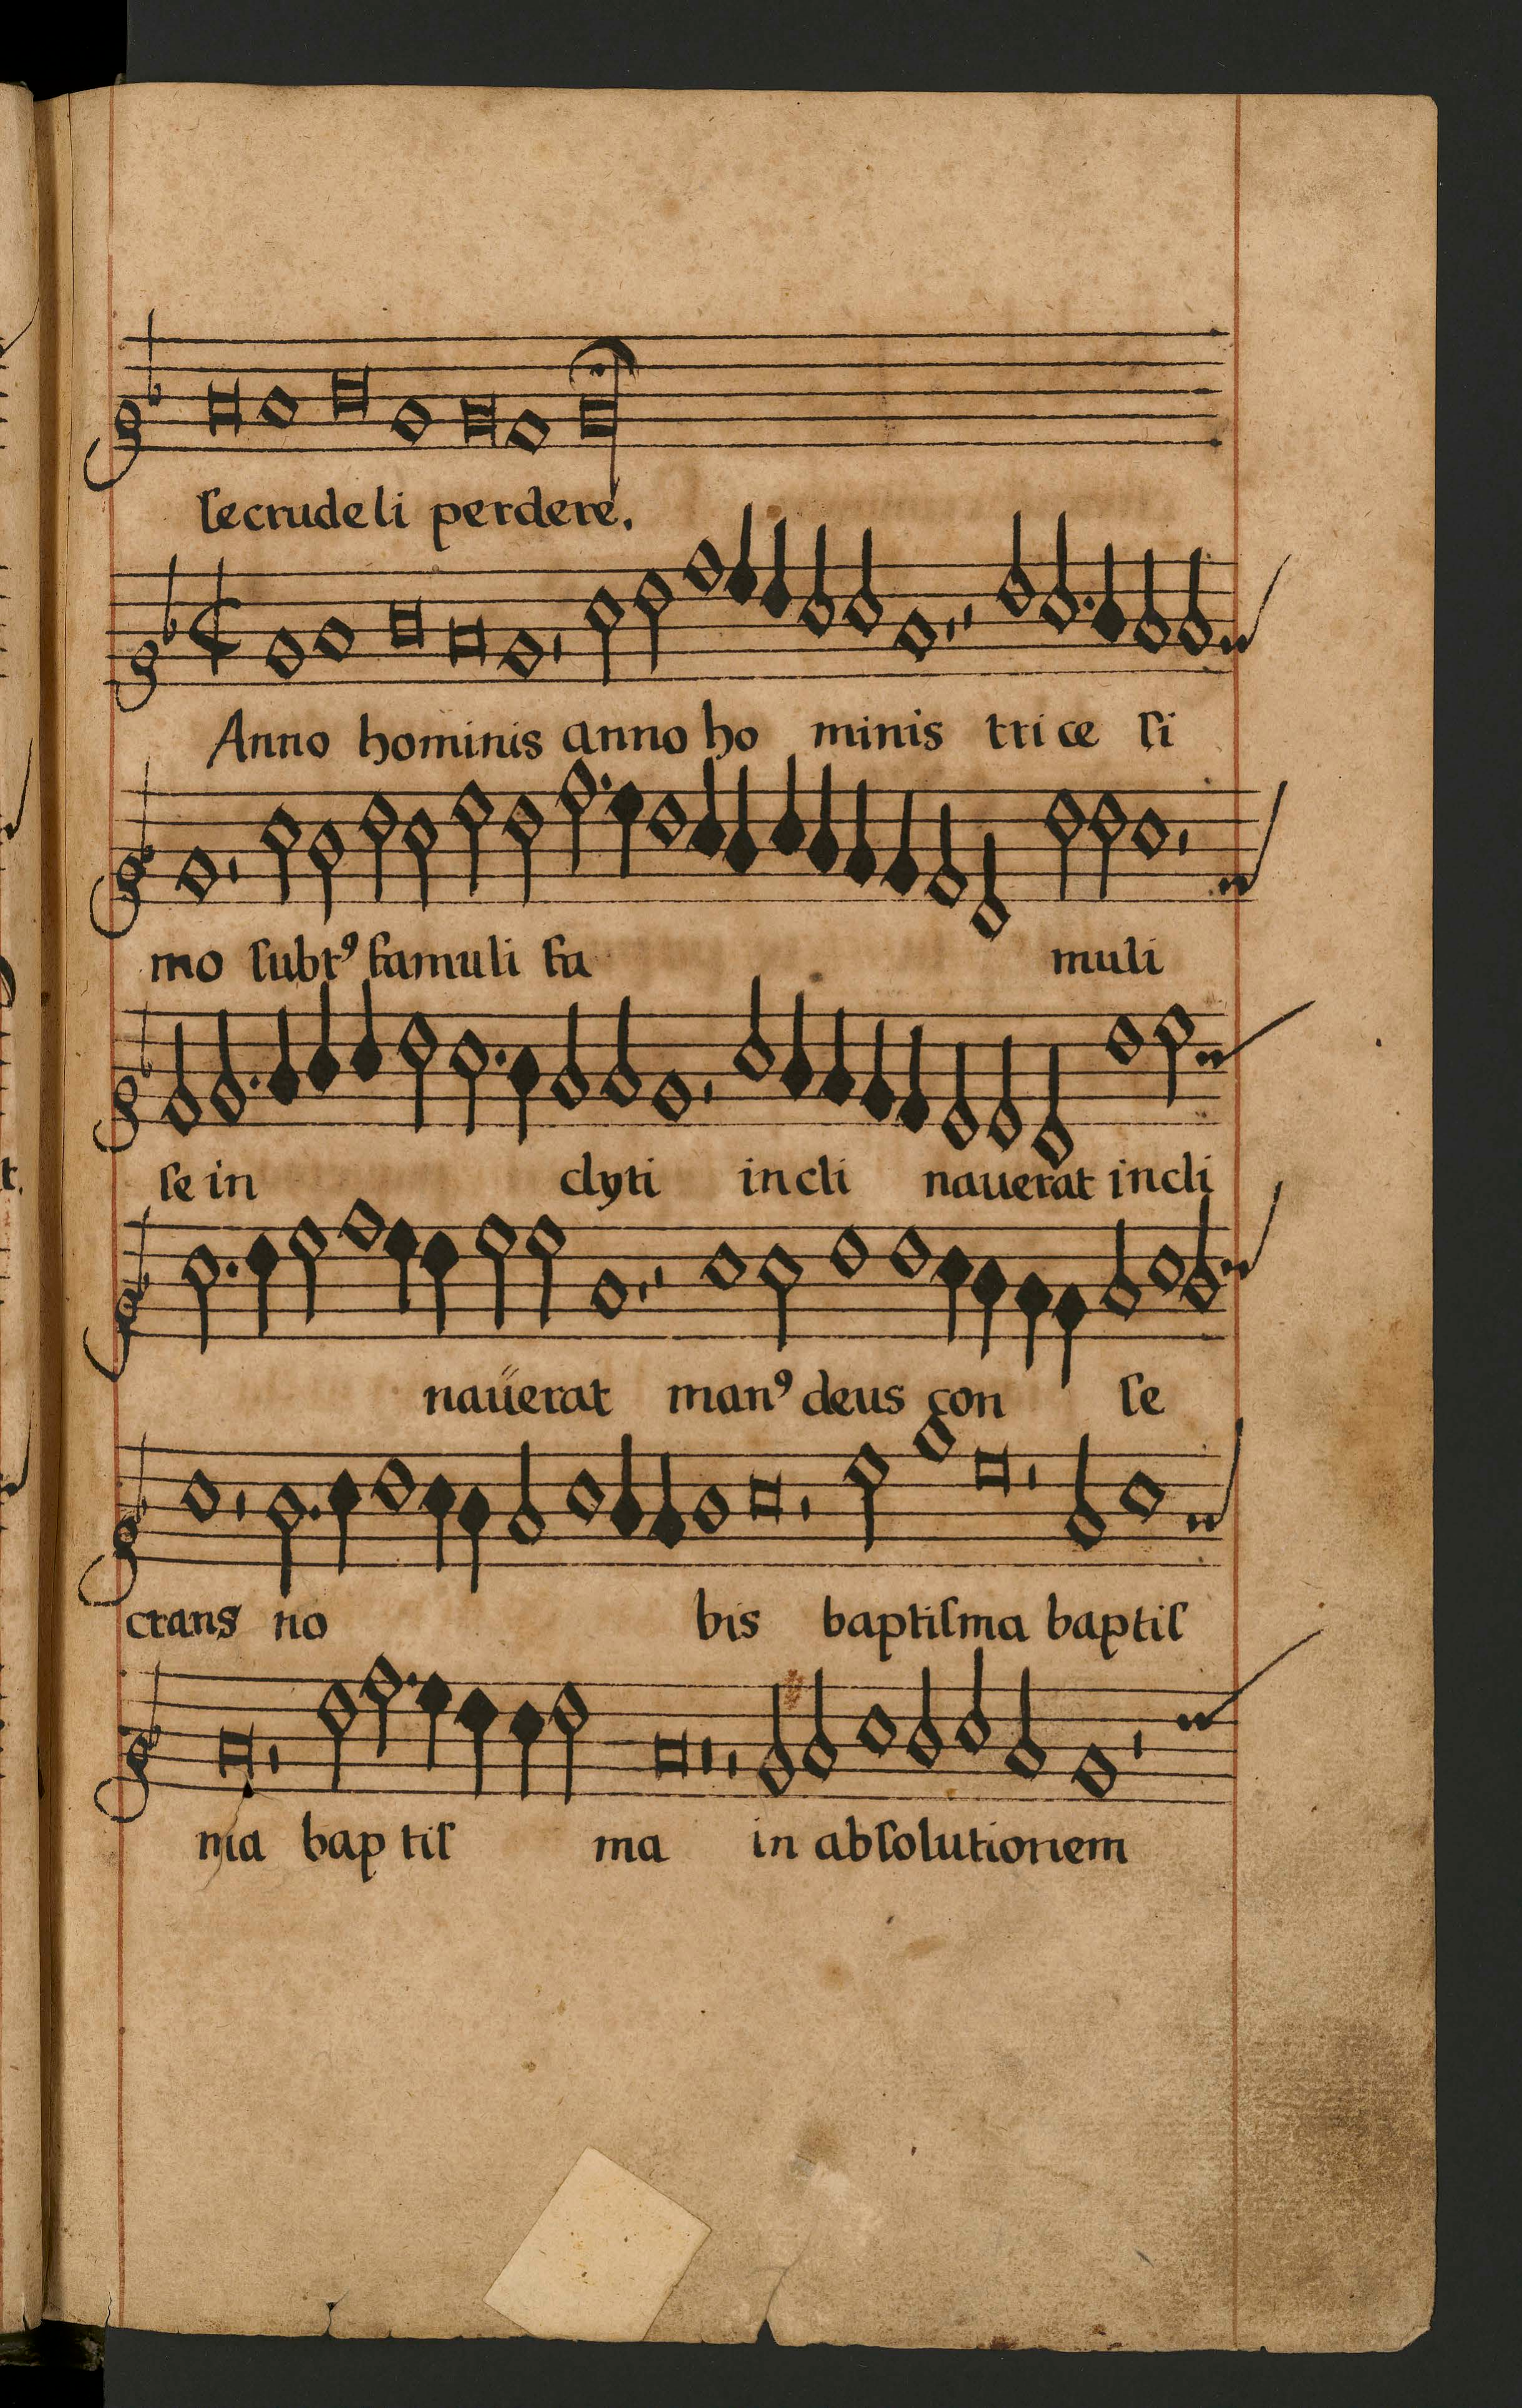 ſecrudeli perdere.
Anno hominis anno ho minis tri ce ſi
mo ſubtꝰ famuli fa muli
ſe in clyti incli nauerat incli
naüerat manꝰ deus con ſe
crans no bis baptiſma baptiſ
ma bap tiſ ma in abſolutionem